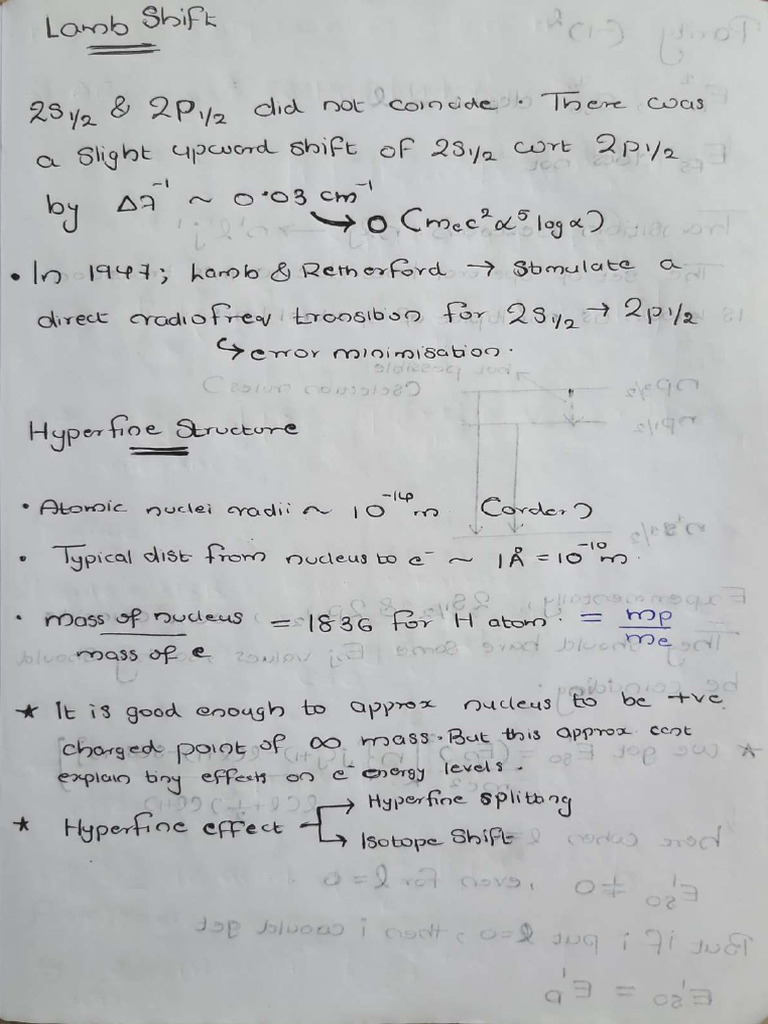 Lamb Shift
2S1/2 & 2P1/2 did not coincide. There was
a slight upward shift of 2S1/2 wrt 2P1/2
by Δλ⁻¹ ~ 0.03 cm⁻¹
→ O (mec²α⁵ log α)
• In 1947; Lamb & Retherford → stimulate a
direct radiofreq transition for 2S1/2 → 2P1/2
↳ error minimisation.
Hyperfine Structure
• Atomic nuclei radii ~ 10⁻¹⁴ m (order)
• Typical dist from nucleus to e⁻ ~ 1Å = 10⁻¹⁰ m.
• mass of nucleus = 1836 for H atom. = mp
mass of e me
★ It is good enough to approx nucleus to be +ve
charged point of ∞ mass. But this approx cant
explain tiny effects on e⁻ energy levels.
★ Hyperfine effect → Hyperfine splitting
→ Isotope Shift